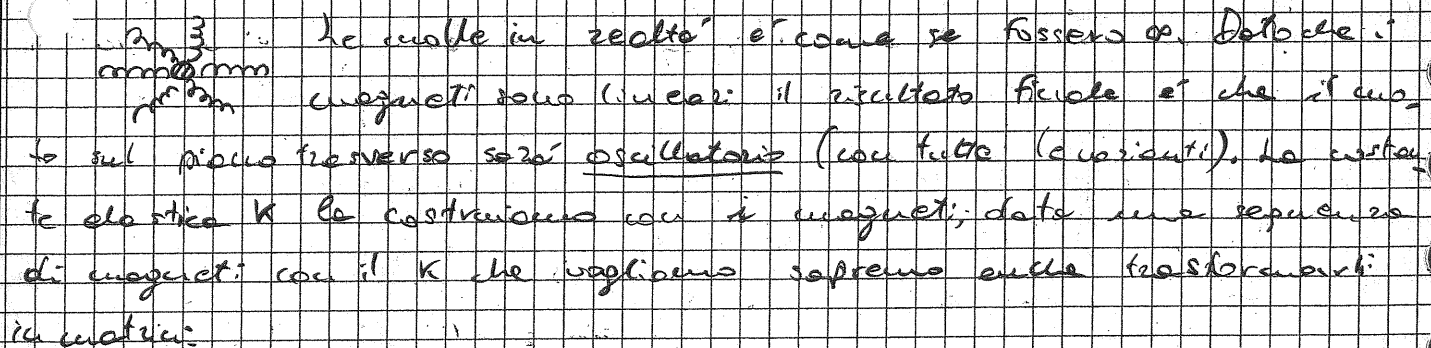 Le molle in realtà è come se fossero ∞. Dato che i
magneti sono lineari il risultato finale è che il mo-
to sul piano trasverso sarà oscillatorio (con tutte le varianti). La costan-
te elastica K la costruiamo con i magneti; data una sequenza
di magneti con il K che vogliamo sapremo anche trasformarli
in matrici